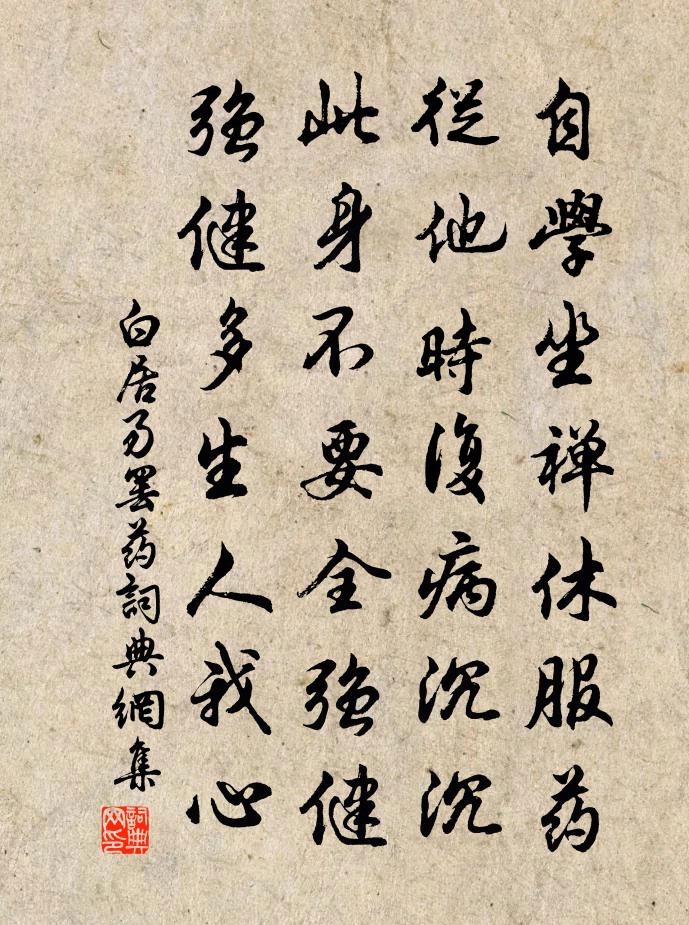 自學坐禅休服药
從他時復病沉沉
此身不要全強健
強健多生人我心
白居易罢药詞典網集
詞典网印